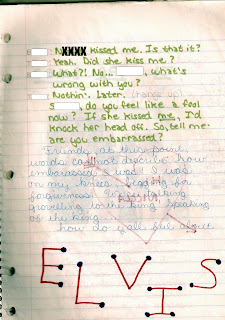 NXXXX kissed me. Is that it?
Yeah. Did she kiss me?
What?! No... , what's
wrong with you?
Nothin'. Later. (hangs up)
S , do you feel like a fool
now? If she kissed me, I'd
knock her head off. So, tell me
are you embarrassed?
Friends, at this point,
words cannot describe how
embarrassed I was! I was
on my knees begging for
forgiveness. I was talking
grovelling to the king. Speaking
of the king...
how do y'all feel about
ELVIS